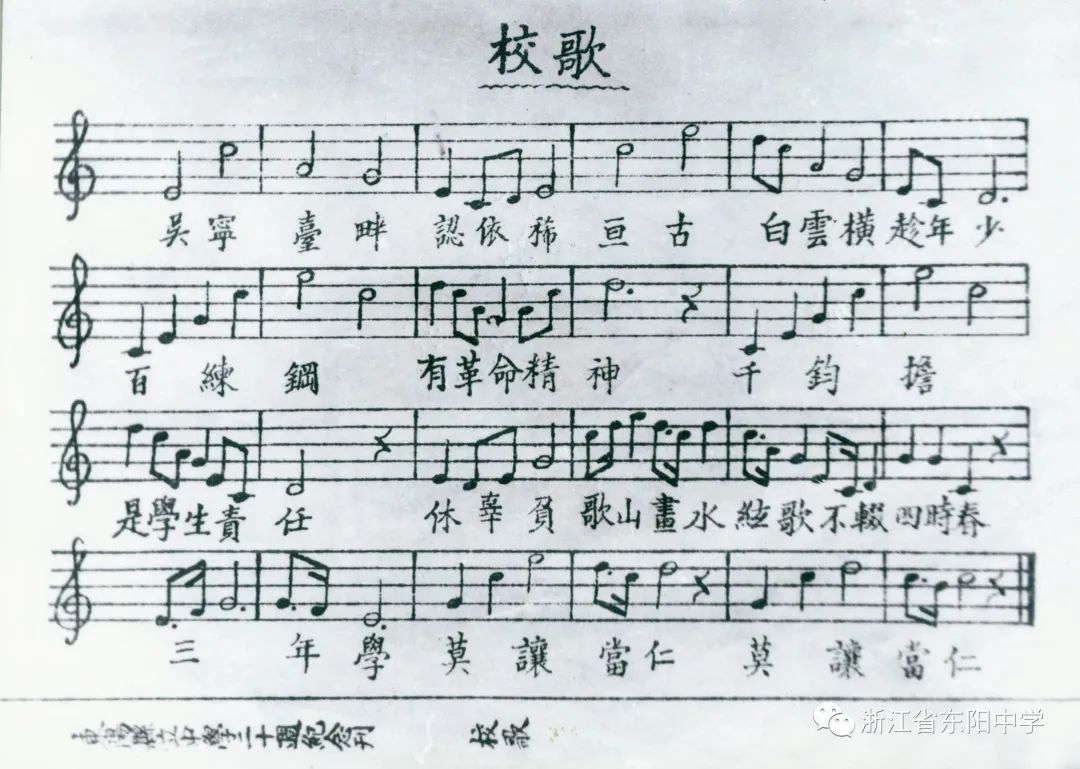 校歌
吳寧臺畔認依稀亘古白雲橫趁年少
百練鋼有革命精神千鈞擔
是學生責任休辜負歌山畫水絃歌不輟四時春
三年學莫讓當仁莫讓當仁
東陽縣立中學二十週紀念刊 校歌
浙江省东阳中学